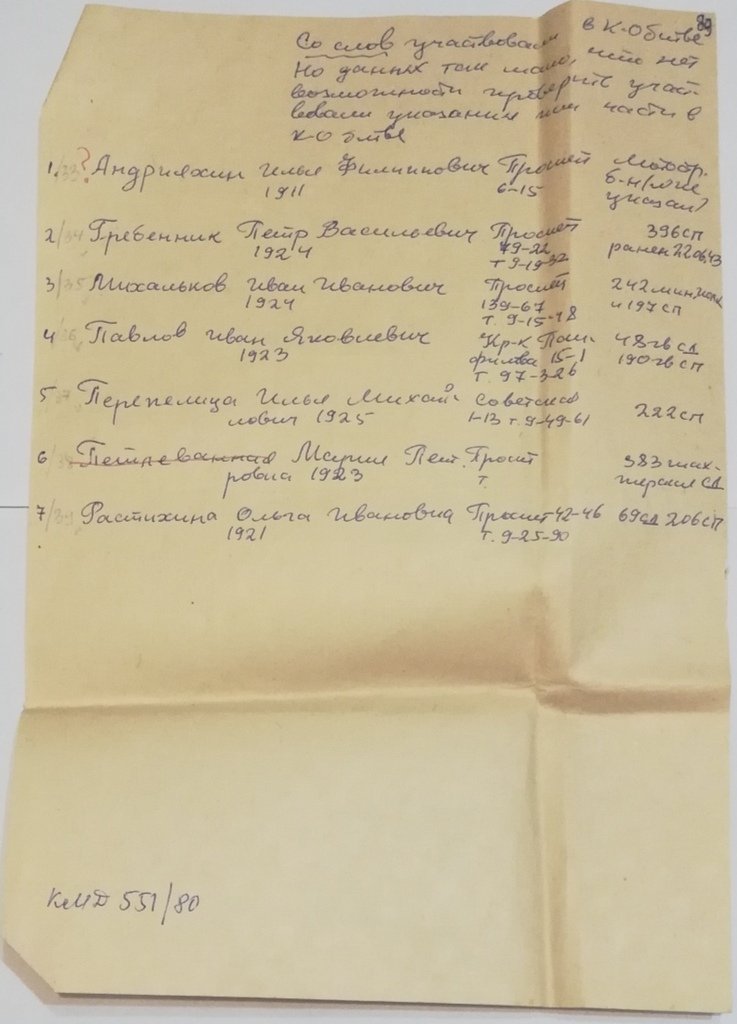 89
Со слов участвовали в К-О битве
Но данных так мало, что нет
возможности проверить участ-
вовали указанные ими части в
К-О битве
1/33? Андрияхин Илья Филиппович Просп Мотостр.
1911 6-15 б-н (не
указан)
2/34 Гребенник Петр Васильевич Просп 396 сп
1924 79-22 ранен 22.06.43
т 9-19-32
3/35 Михальков Иван Иванович Просп 242 мин. полк
1924 139-67 и 197 сп
т. 9-15-48
4/36 Павлов Иван Яковлевич Кр-к Пан- 48 гв сд
1923 филова 15-1 190 гв сп
т. 97-3-26
5/37 Перепелица Илья Михай- Советская 222 сп
лович 1925 1-13 т. 9-49-61
6/38 Мария Пет- Просп 383 шах-
ровна 1923 т. терская СД
7/39 Растихина Ольга Ивановна Просп 42-46 69 сд 206 сп
1921 т. 9-25-90
КМД 551/80